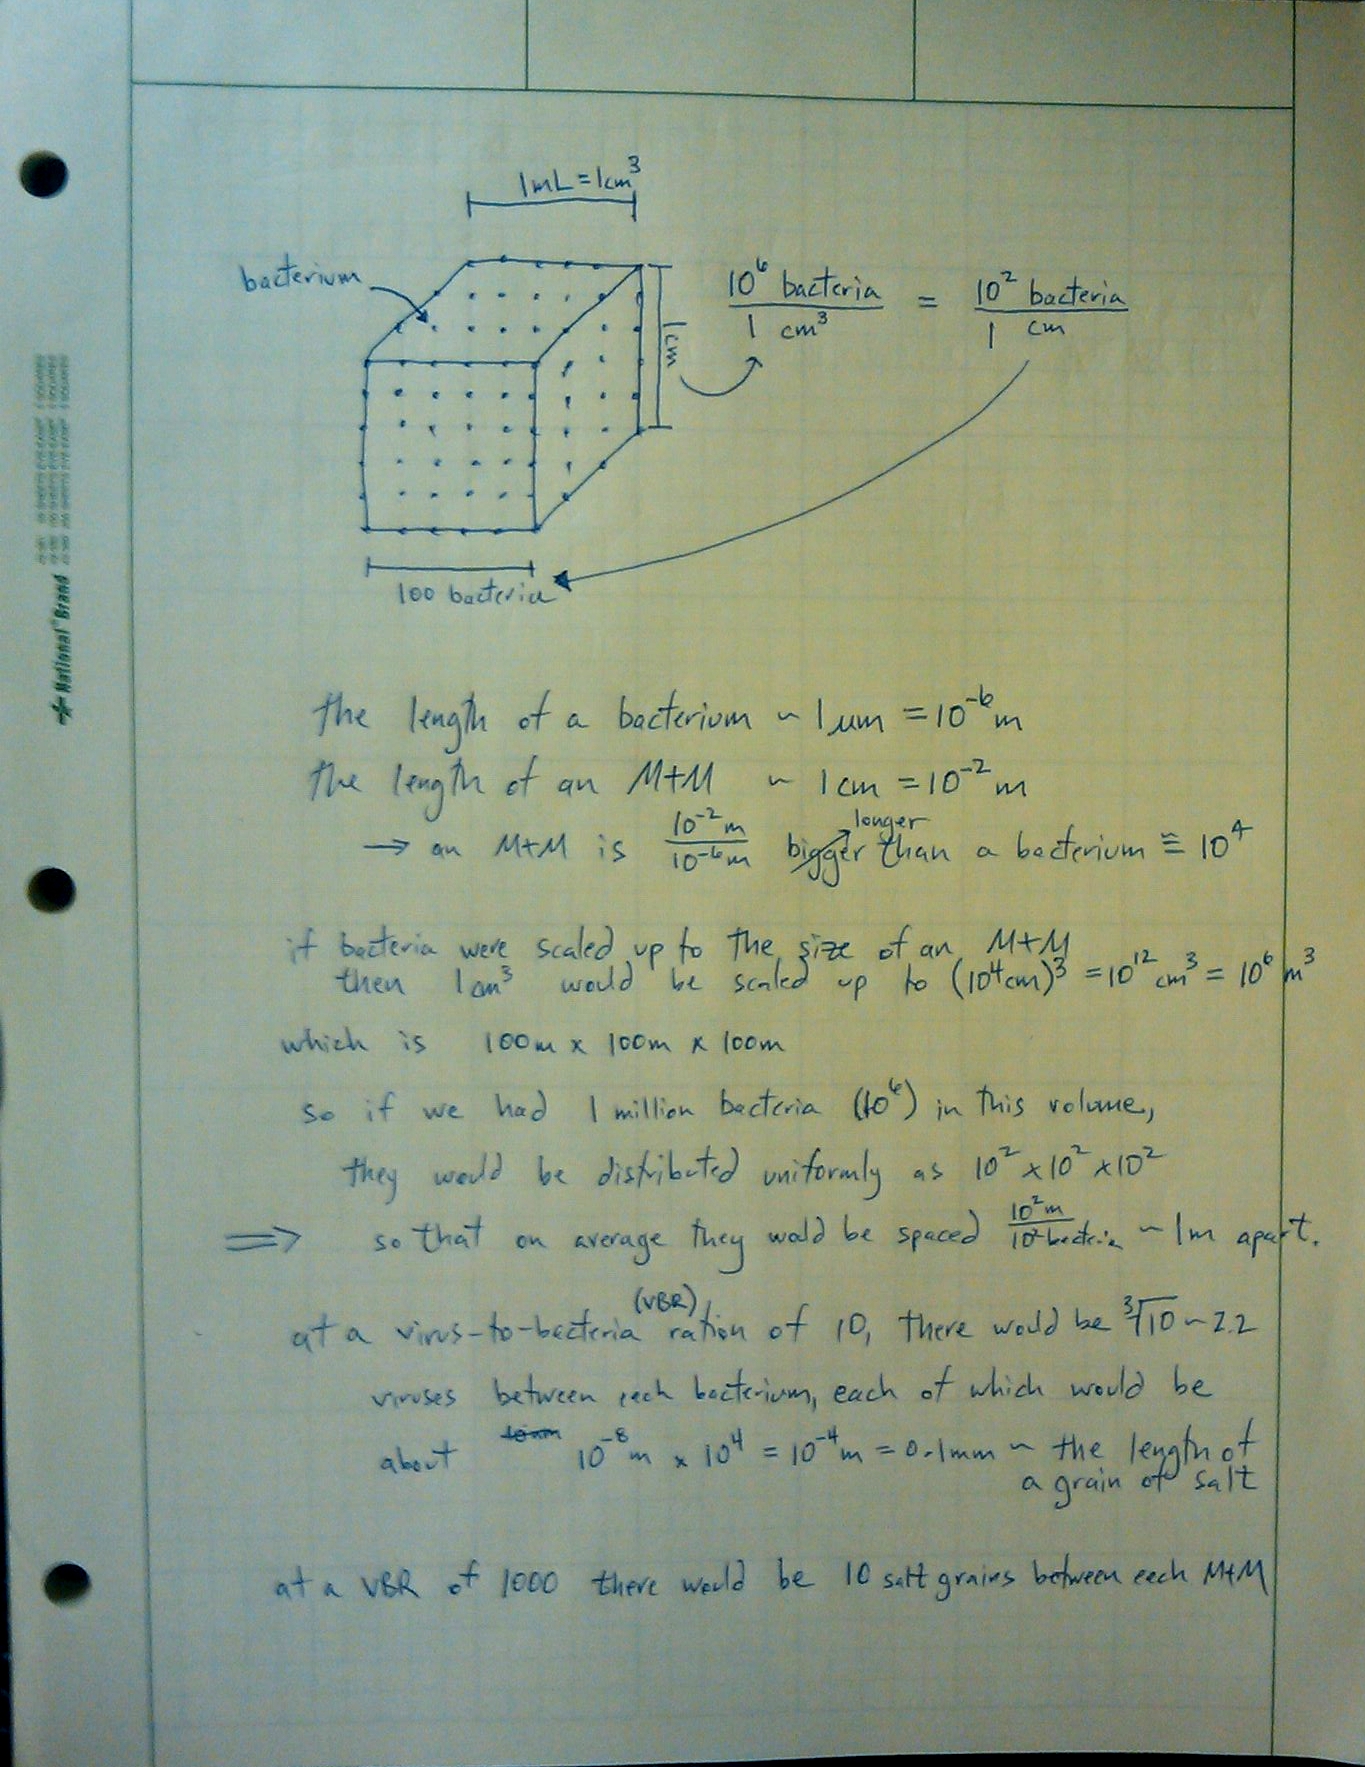 1mL = 1cm³
bacterium
1cm
10⁶ bacteria / 1 cm³ = 10² bacteria / 1 cm
100 bacteria
National® Brand
the length of a bacterium ~ 1 µm = 10⁻⁶ m
the length of an M+M ~ 1 cm = 10⁻² m
longer
→ an M+M is 10⁻² m / 10⁻⁶ m bigger than a bacterium ≅ 10⁴
if bacteria were scaled up to the size of an M+M
then 1 cm³ would be scaled up to (10⁴cm)³ = 10¹² cm³ = 10⁶ m³
which is 100m x 100m x 100m
so if we had 1 million bacteria (10⁶) in this volume,
they would be distributed uniformly as 10² x 10² x 10²
⟹ so that on average they would be spaced 10² m / 10² bacteria ~ 1m apart.
(VBR)
at a virus-to-bacteria ration of 10, there would be ³√10 ~ 2.2
viruses between each bacterium, each of which would be
about 10⁻⁸ m x 10⁴ = 10⁻⁴ m = 0.1mm ~ the length of
a grain of salt
at a VBR of 1000 there would be 10 salt grains between each M+M